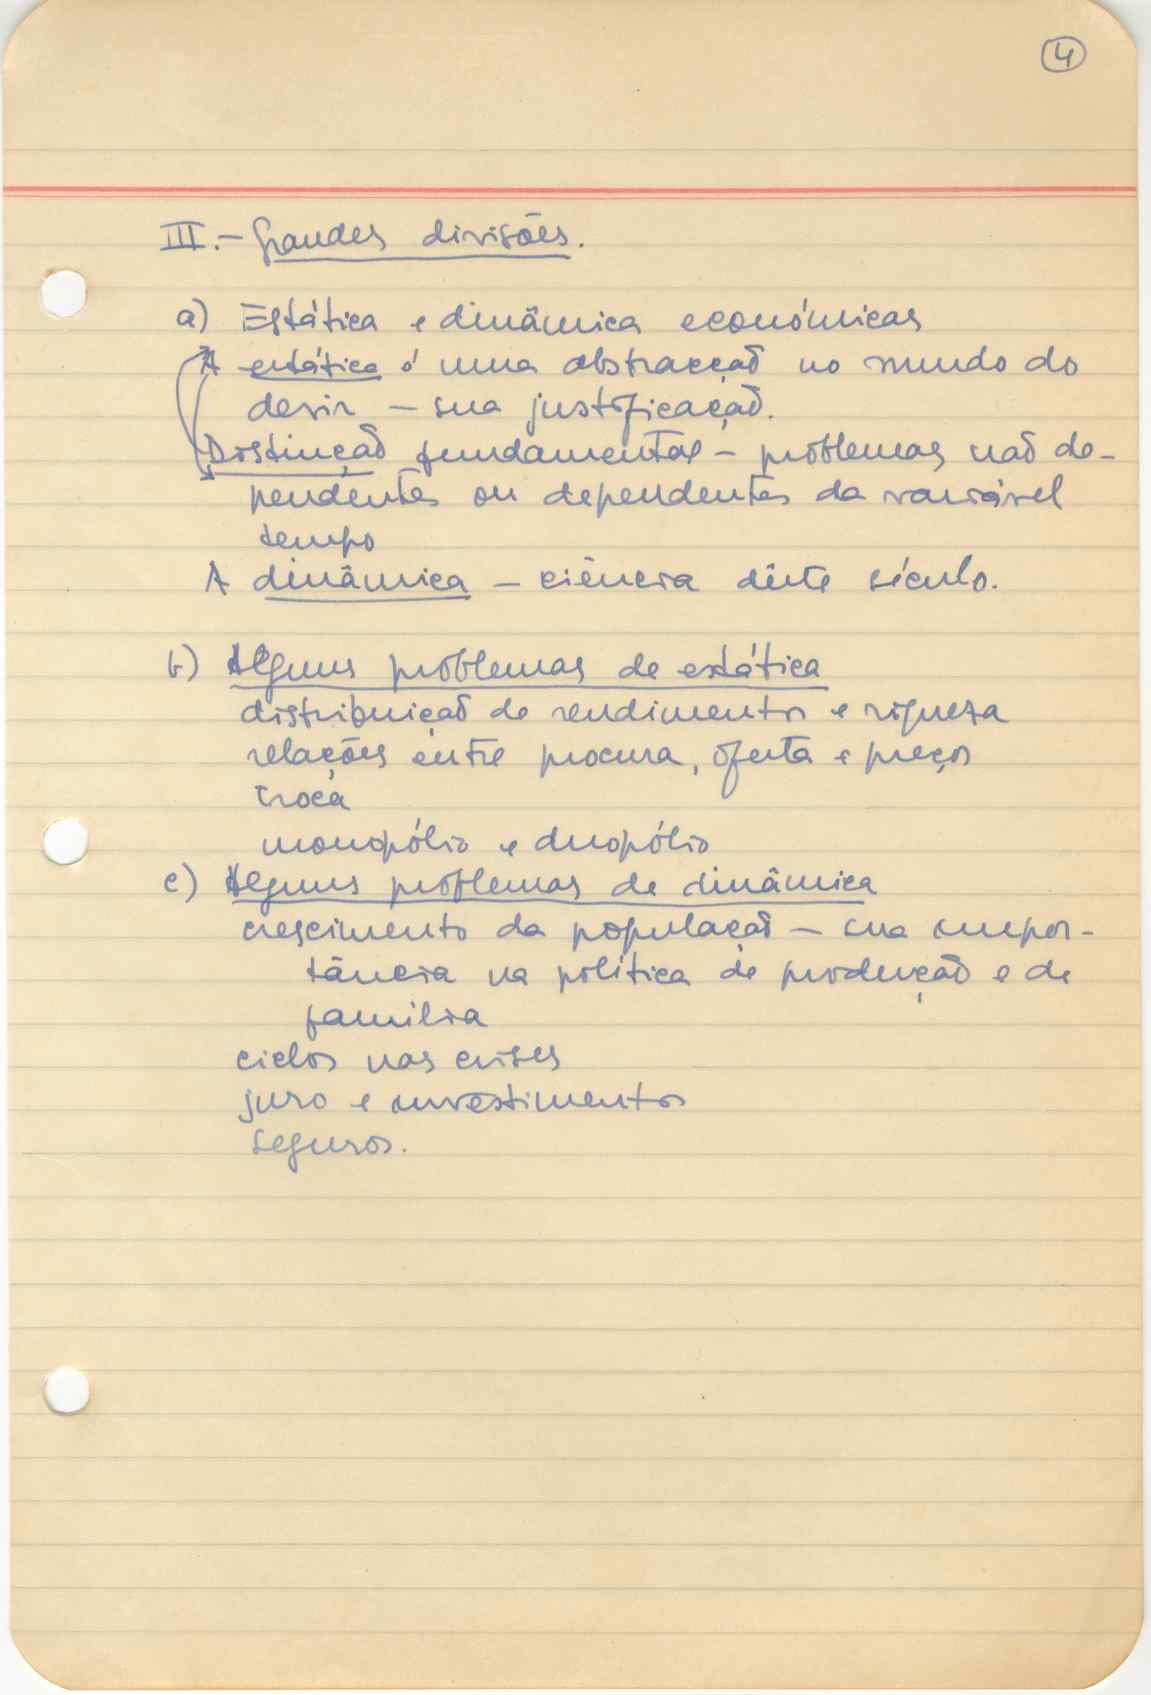 4
III.- Grandes divisões.
a) Estática e dinâmica económicas
A estática é uma abstracção no mundo do
devir - sua justificação.
Distinção fundamental - problemas não de-
pendentes ou dependentes da variável
tempo
A dinâmica - ciência dêste século.
b) Alguns problemas de estática
distribuição de rendimentos e riqueza
relações entre procura, oferta e preços
troca
monopólio e duopólio
c) Alguns problemas de dinâmica
crescimento da população - sua impor-
tância na política de produção e de
família
ciclos nas crises
juro e investimentos
seguros.